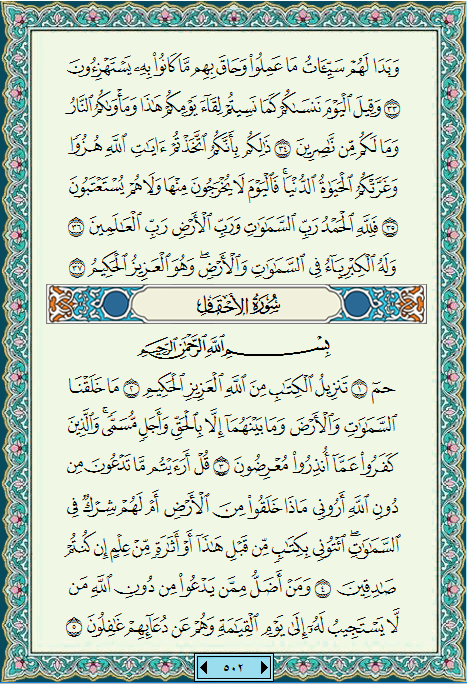 وَبَدَا لَهُمْ سَيِّـَٔاتُ مَا عَمِلُوا۟ وَحَاقَ بِهِم مَّا كَانُوا۟ بِهِۦ يَسْتَهْزِءُونَ
٣٣ وَقِيلَ ٱلْيَوْمَ نَنسَىٰكُمْ كَمَا نَسِيتُمْ لِقَآءَ يَوْمِكُمْ هَٰذَا وَمَأْوَىٰكُمُ ٱلنَّارُ
وَمَا لَكُم مِّن نَّٰصِرِينَ ٣٤ ذَٰلِكُم بِأَنَّكُمُ ٱتَّخَذْتُمْ ءَايَٰتِ ٱللَّهِ هُزُوًا
وَغَرَّتْكُمُ ٱلْحَيَوٰةُ ٱلدُّنْيَا ۚ فَٱلْيَوْمَ لَا يُخْرَجُونَ مِنْهَا وَلَا هُمْ يُسْتَعْتَبُونَ
٣٥ فَلِلَّهِ ٱلْحَمْدُ رَبِّ ٱلسَّمَٰوَٰتِ وَرَبِّ ٱلْأَرْضِ رَبِّ ٱلْعَٰلَمِينَ ٣٦
وَلَهُ ٱلْكِبْرِيَآءُ فِى ٱلسَّمَٰوَٰتِ وَٱلْأَرْضِ ۖ وَهُوَ ٱلْعَزِيزُ ٱلْحَكِيمُ ٣٧
سُورَةُ الأَحْقَافِ
بِسْمِ ٱللَّهِ ٱلرَّحْمَٰنِ ٱلرَّحِيمِ
حمٓ ١ تَنزِيلُ ٱلْكِتَٰبِ مِنَ ٱللَّهِ ٱلْعَزِيزِ ٱلْحَكِيمِ ٢ مَا خَلَقْنَا
ٱلسَّمَٰوَٰتِ وَٱلْأَرْضَ وَمَا بَيْنَهُمَآ إِلَّا بِٱلْحَقِّ وَأَجَلٍ مُّسَمًّى ۚ وَٱلَّذِينَ
كَفَرُوا۟ عَمَّآ أُنذِرُوا۟ مُعْرِضُونَ ٣ قُلْ أَرَءَيْتُم مَّا تَدْعُونَ مِن
دُونِ ٱللَّهِ أَرُونِى مَاذَا خَلَقُوا۟ مِنَ ٱلْأَرْضِ أَمْ لَهُمْ شِرْكٌ فِى
ٱلسَّمَٰوَٰتِ ۖ ٱئْتُونِى بِكِتَٰبٍ مِّن قَبْلِ هَٰذَآ أَوْ أَثَٰرَةٍ مِّنْ عِلْمٍ إِن كُنتُمْ
صَٰدِقِينَ ٤ وَمَنْ أَضَلُّ مِمَّن يَدْعُوا۟ مِن دُونِ ٱللَّهِ مَن
لَّا يَسْتَجِيبُ لَهُۥٓ إِلَىٰ يَوْمِ ٱلْقِيَٰمَةِ وَهُمْ عَن دُعَآئِهِمْ غَٰفِلُونَ ٥
٥٠٢